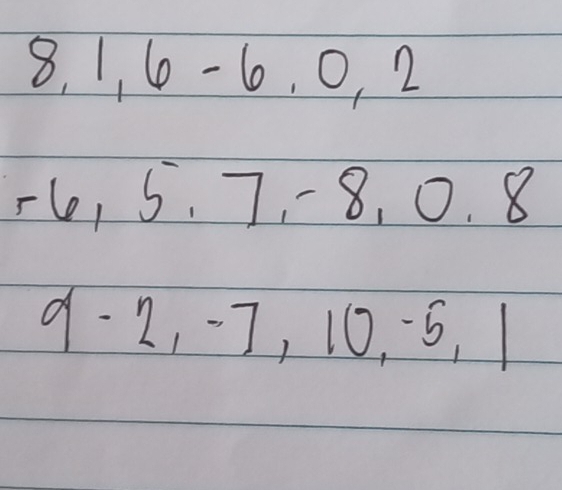 8, 1, 6 - 6, 0, 2
-6, 5, 7, -8, 0, 8
9 - 2, -7, 10, -5, 1